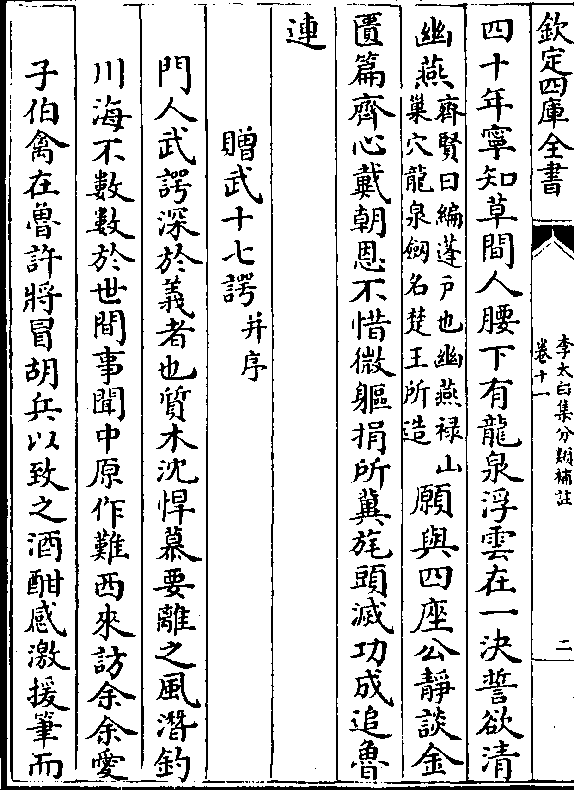 欽定四庫全書
李太白集分類補註
卷十一
二
四十年寧知草間人腰下有龍泉浮雲在一決誓欲清
幽燕
齊賢曰編蓬戸也幽燕禄山
巢穴龍泉劔名楚王所造
願與四座公靜談金
匱篇齊心戴朝恩不惜微軀捐所冀旄頭滅功成追魯
連
贈武十七諤并序
門人武諤深於義者也質木沈悍慕要離之風潛釣
川海不數數於世間事聞中原作難西來訪余余愛
子伯禽在魯許將冒胡兵以致之酒酣感激援筆而